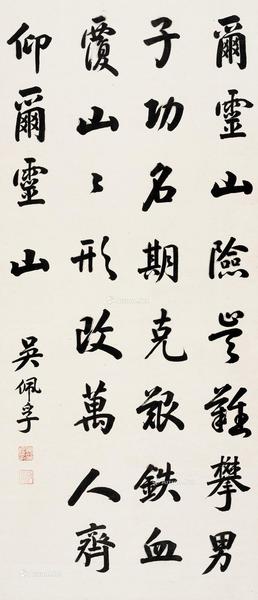 爾靈山險豈難攀男
子功名期克艱鉄血
覆山〻形改萬人齊
仰爾靈山
吳佩孚